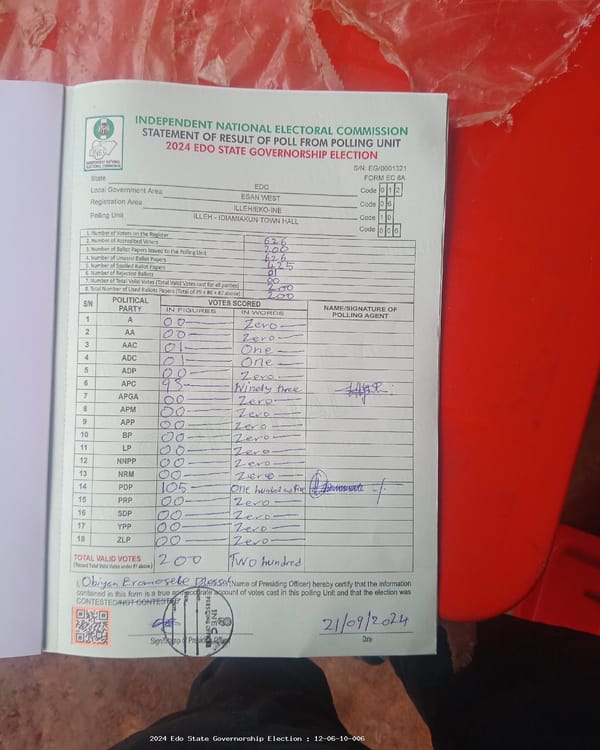 INDEPENDENT NATIONAL ELECTORAL COMMISSION
STATEMENT OF RESULT OF POLL FROM POLLING UNIT
2024 EDO STATE GOVERNORSHIP ELECTION
INDEPENDENT NATIONAL ELECTORAL COMMISSION
S/N: EG/0001321
FORM EC 8A
State EDO Code 0 1 2
Local Government Area ESAN WEST Code 0 6
Registration Area ILLEH/EKO-INE Code 1 0
Polling Unit ILLEH - IDIAMIAKUN TOWN HALL Code 0 0 6
1. Number of Voters on the Register 626
2. Number of Accredited Voters 200
3. Number of Ballot Papers Issued to the Polling Unit 626
4. Number of Unused Ballot Papers 425
5. Number of Spoiled Ballot Papers 01
6. Number of Rejected Ballots 00
7. Number of Total Valid Votes (Total Valid Votes cast for all parties) 200
8. Total Number of Used Ballots Papers (Total of #5 + #6 + #7 above) 200
S/N POLITICAL PARTY VOTES SCORED NAME/SIGNATURE OF POLLING AGENT
IN FIGURES IN WORDS
1 A 00 Zero
2 AA 00 Zero
3 AAC 01 One
4 ADC 01 One
5 ADP 00 Zero
6 APC 93 Ninety three
7 APGA 00 Zero
8 APM 00 Zero
9 APP 00 Zero
10 BP 00 Zero
11 LP 00 Zero
12 NNPP 00 Zero
13 NRM 00 Zero
14 PDP 105 One hundred and five
15 PRP 00 Zero
16 SDP 00 Zero
17 YPP 00 Zero
18 ZLP 00 Zero
TOTAL VALID VOTES 200 Two hundred
(Record Total Valid Votes under #7 above)
I, Eromosele Blessing (Name of Presiding Officer) hereby certify that the information
contained in this form is a true and accurate account of votes cast in this polling Unit and that the election was
CONTESTED/NOT CONTESTED
INEC
21/09/2024
Signature of Presiding Officer Date
2024 Edo State Governorship Election : 12-06-10-006